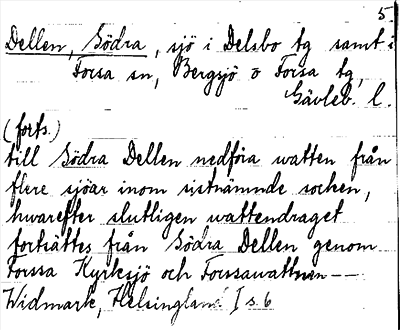 5.
Dellen, Södra, sjö i Delsbo tg samt i
Forsa sn, Bergsjö o Forsa tg,
Gävleb. l.
(forts.)
till Södra Dellen nedföra watten från
flere sjöar inom sistnämnde socken,
hwarefter slutligen wattendraget
fortsättes från Södra Dellen genom
Forssa Kyrksjö och Forssawattnen --
Widmark, Helsingland I s. 6